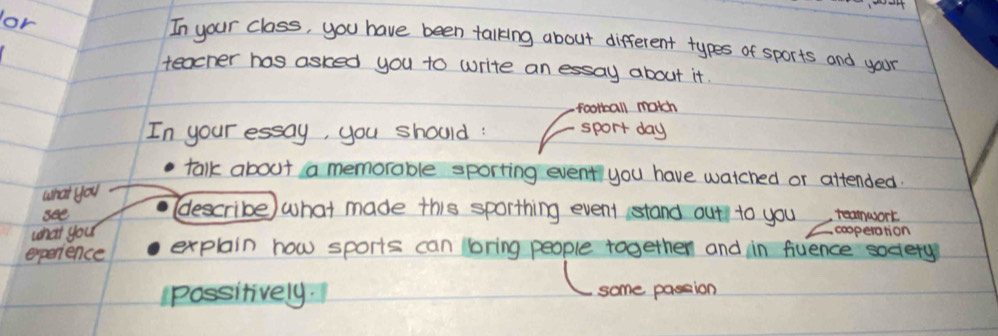 or
In your class, you have been talking about different types of sports and your
teacher has asked you to write an essay about it.
football match
In your essay, you should :
sport day
• talk about a memorable sporting event you have watched or attended.
what you
see
• describe what made this sporthing event stand out to you
teamwork
what you
cooperation
experience
• explain how sports can bring people together and in fluence society
possitively.
same passion